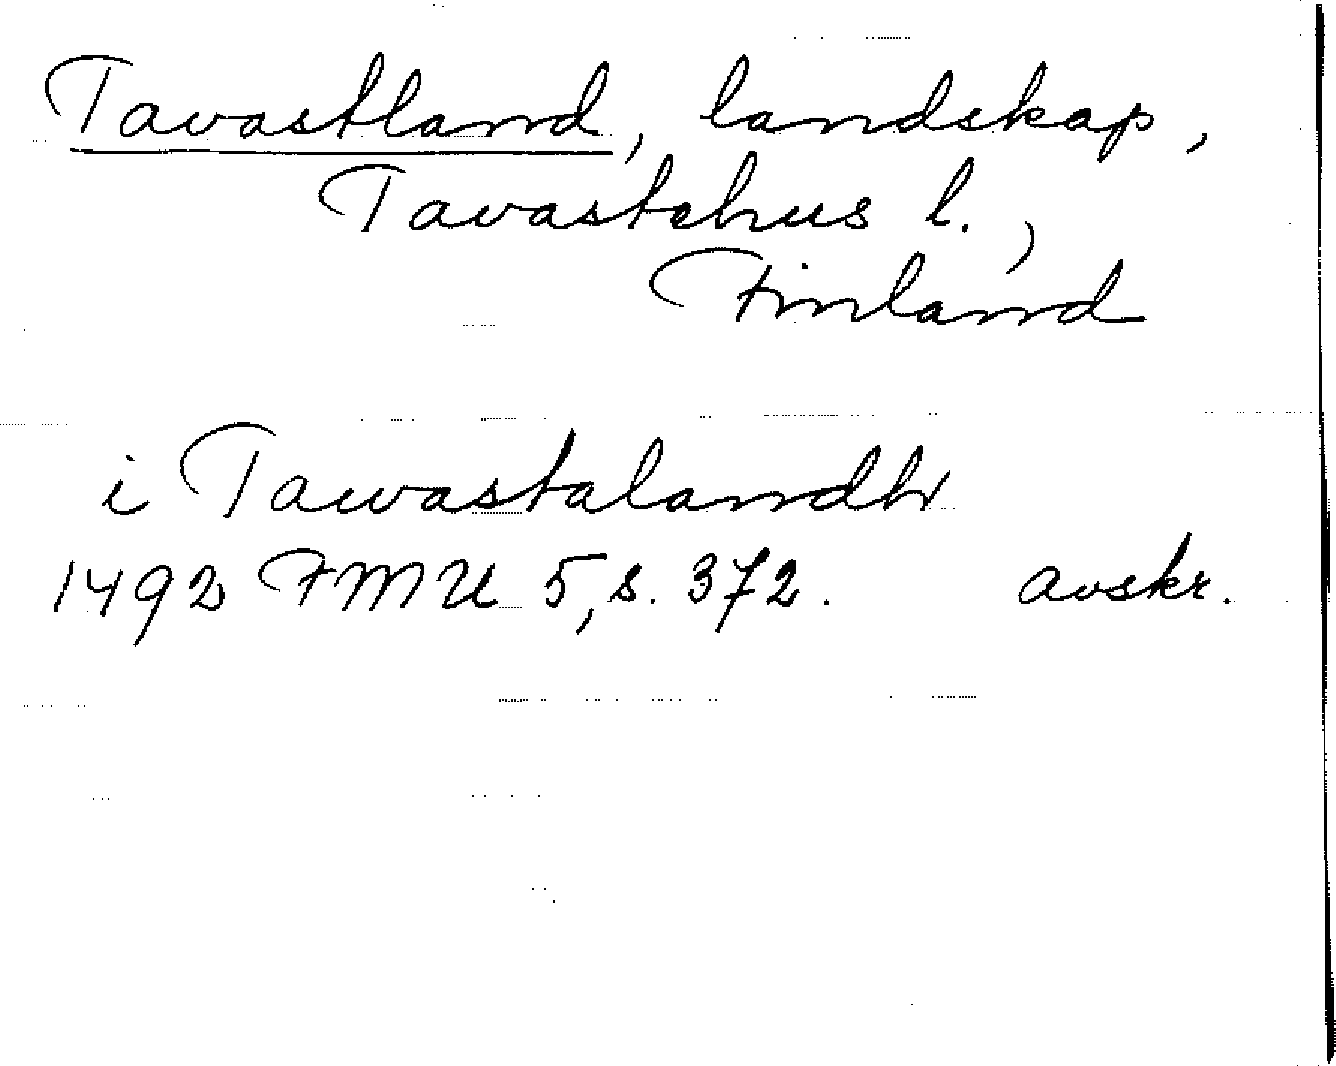 Tavastland, landskap,
Tavastehus l.,
Finland
i Tawastalandh
1492 FMU 5, s. 372. avskr.